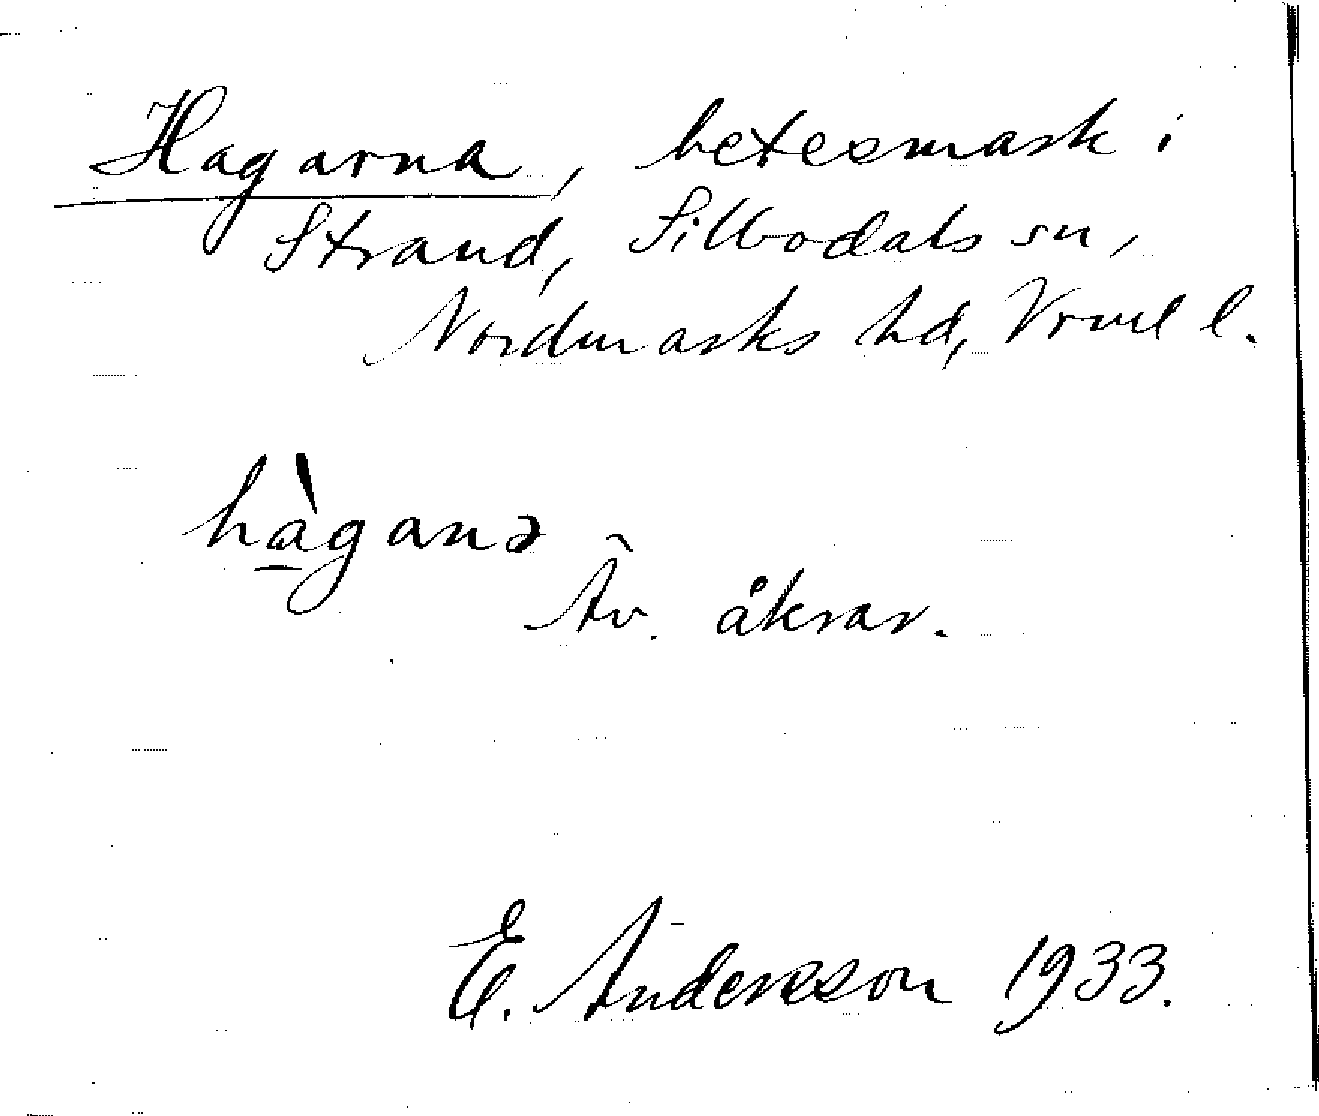 Hagarna, betesmark i
Strand, Silbodals sn,
Nordmarks hd, Vrml l.
hàganə
Äv. åkrar.
E. Andersson 1933.